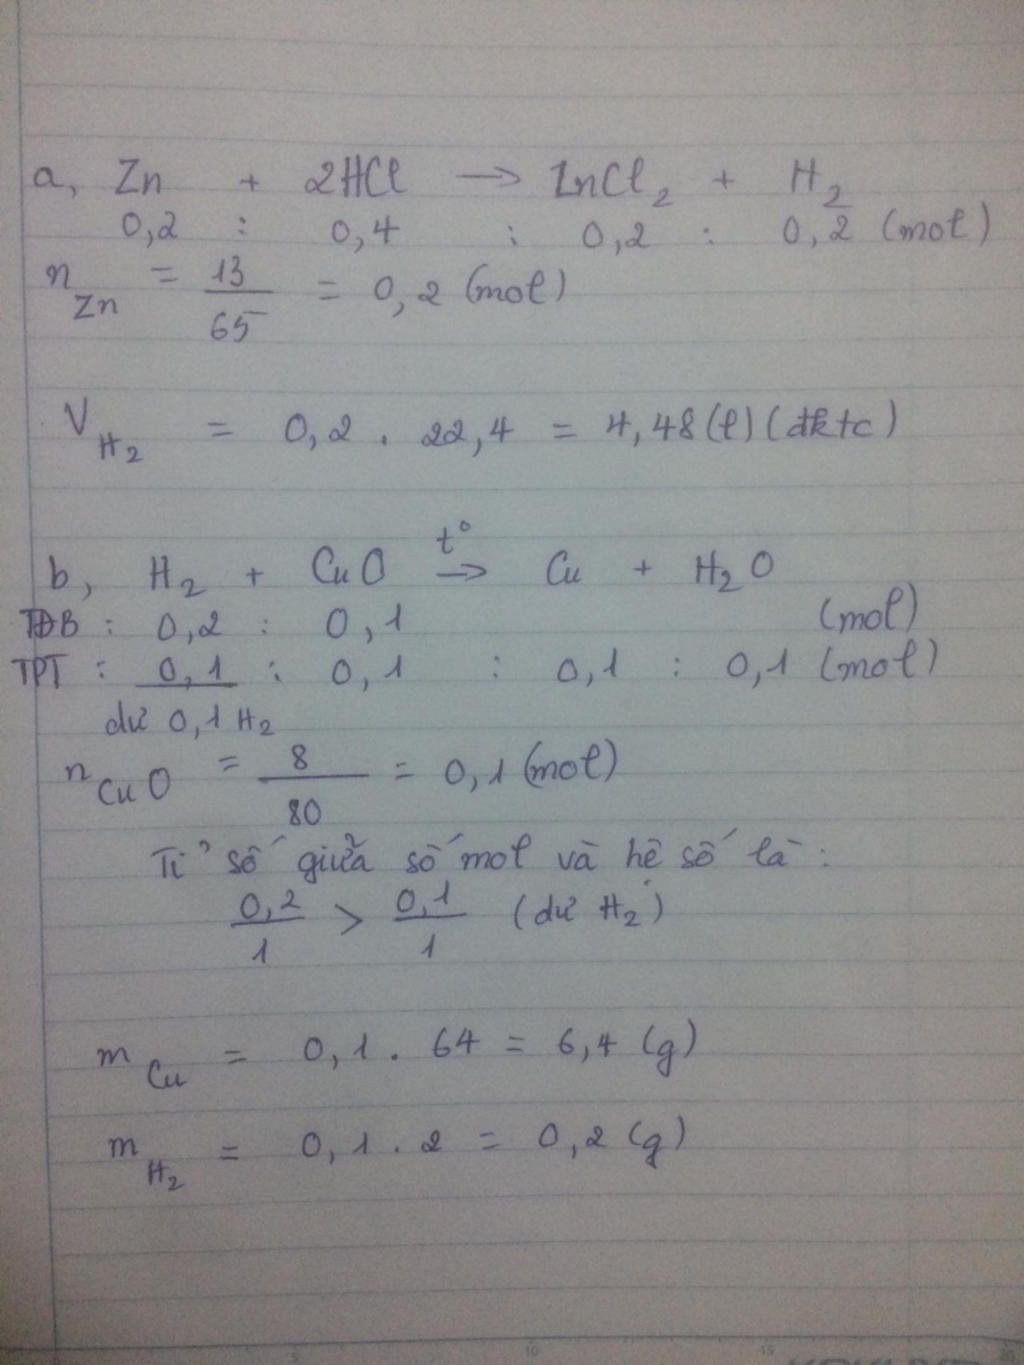 a, Zn + 2HCl → ZnCl₂ + H₂
0,2 : 0,4 : 0,2 : 0,2 (mol)
n Zn = 13/65 = 0,2 (mol)
V H₂ = 0,2 . 22,4 = 4,48 (l) (đktc)
b, H₂ + CuO t° → Cu + H₂O
TĐB : 0,2 : 0,1 (mol)
TPT : 0,1 : 0,1 : 0,1 : 0,1 (mol)
dư 0,1 H₂
n CuO = 8/80 = 0,1 (mol)
Tỉ số giữa số mol và hệ số là :
0,2/1 > 0,1/1 (dư H₂)
m Cu = 0,1 . 64 = 6,4 (g)
m H₂ = 0,1 . 2 = 0,2 (g)
5 10 15